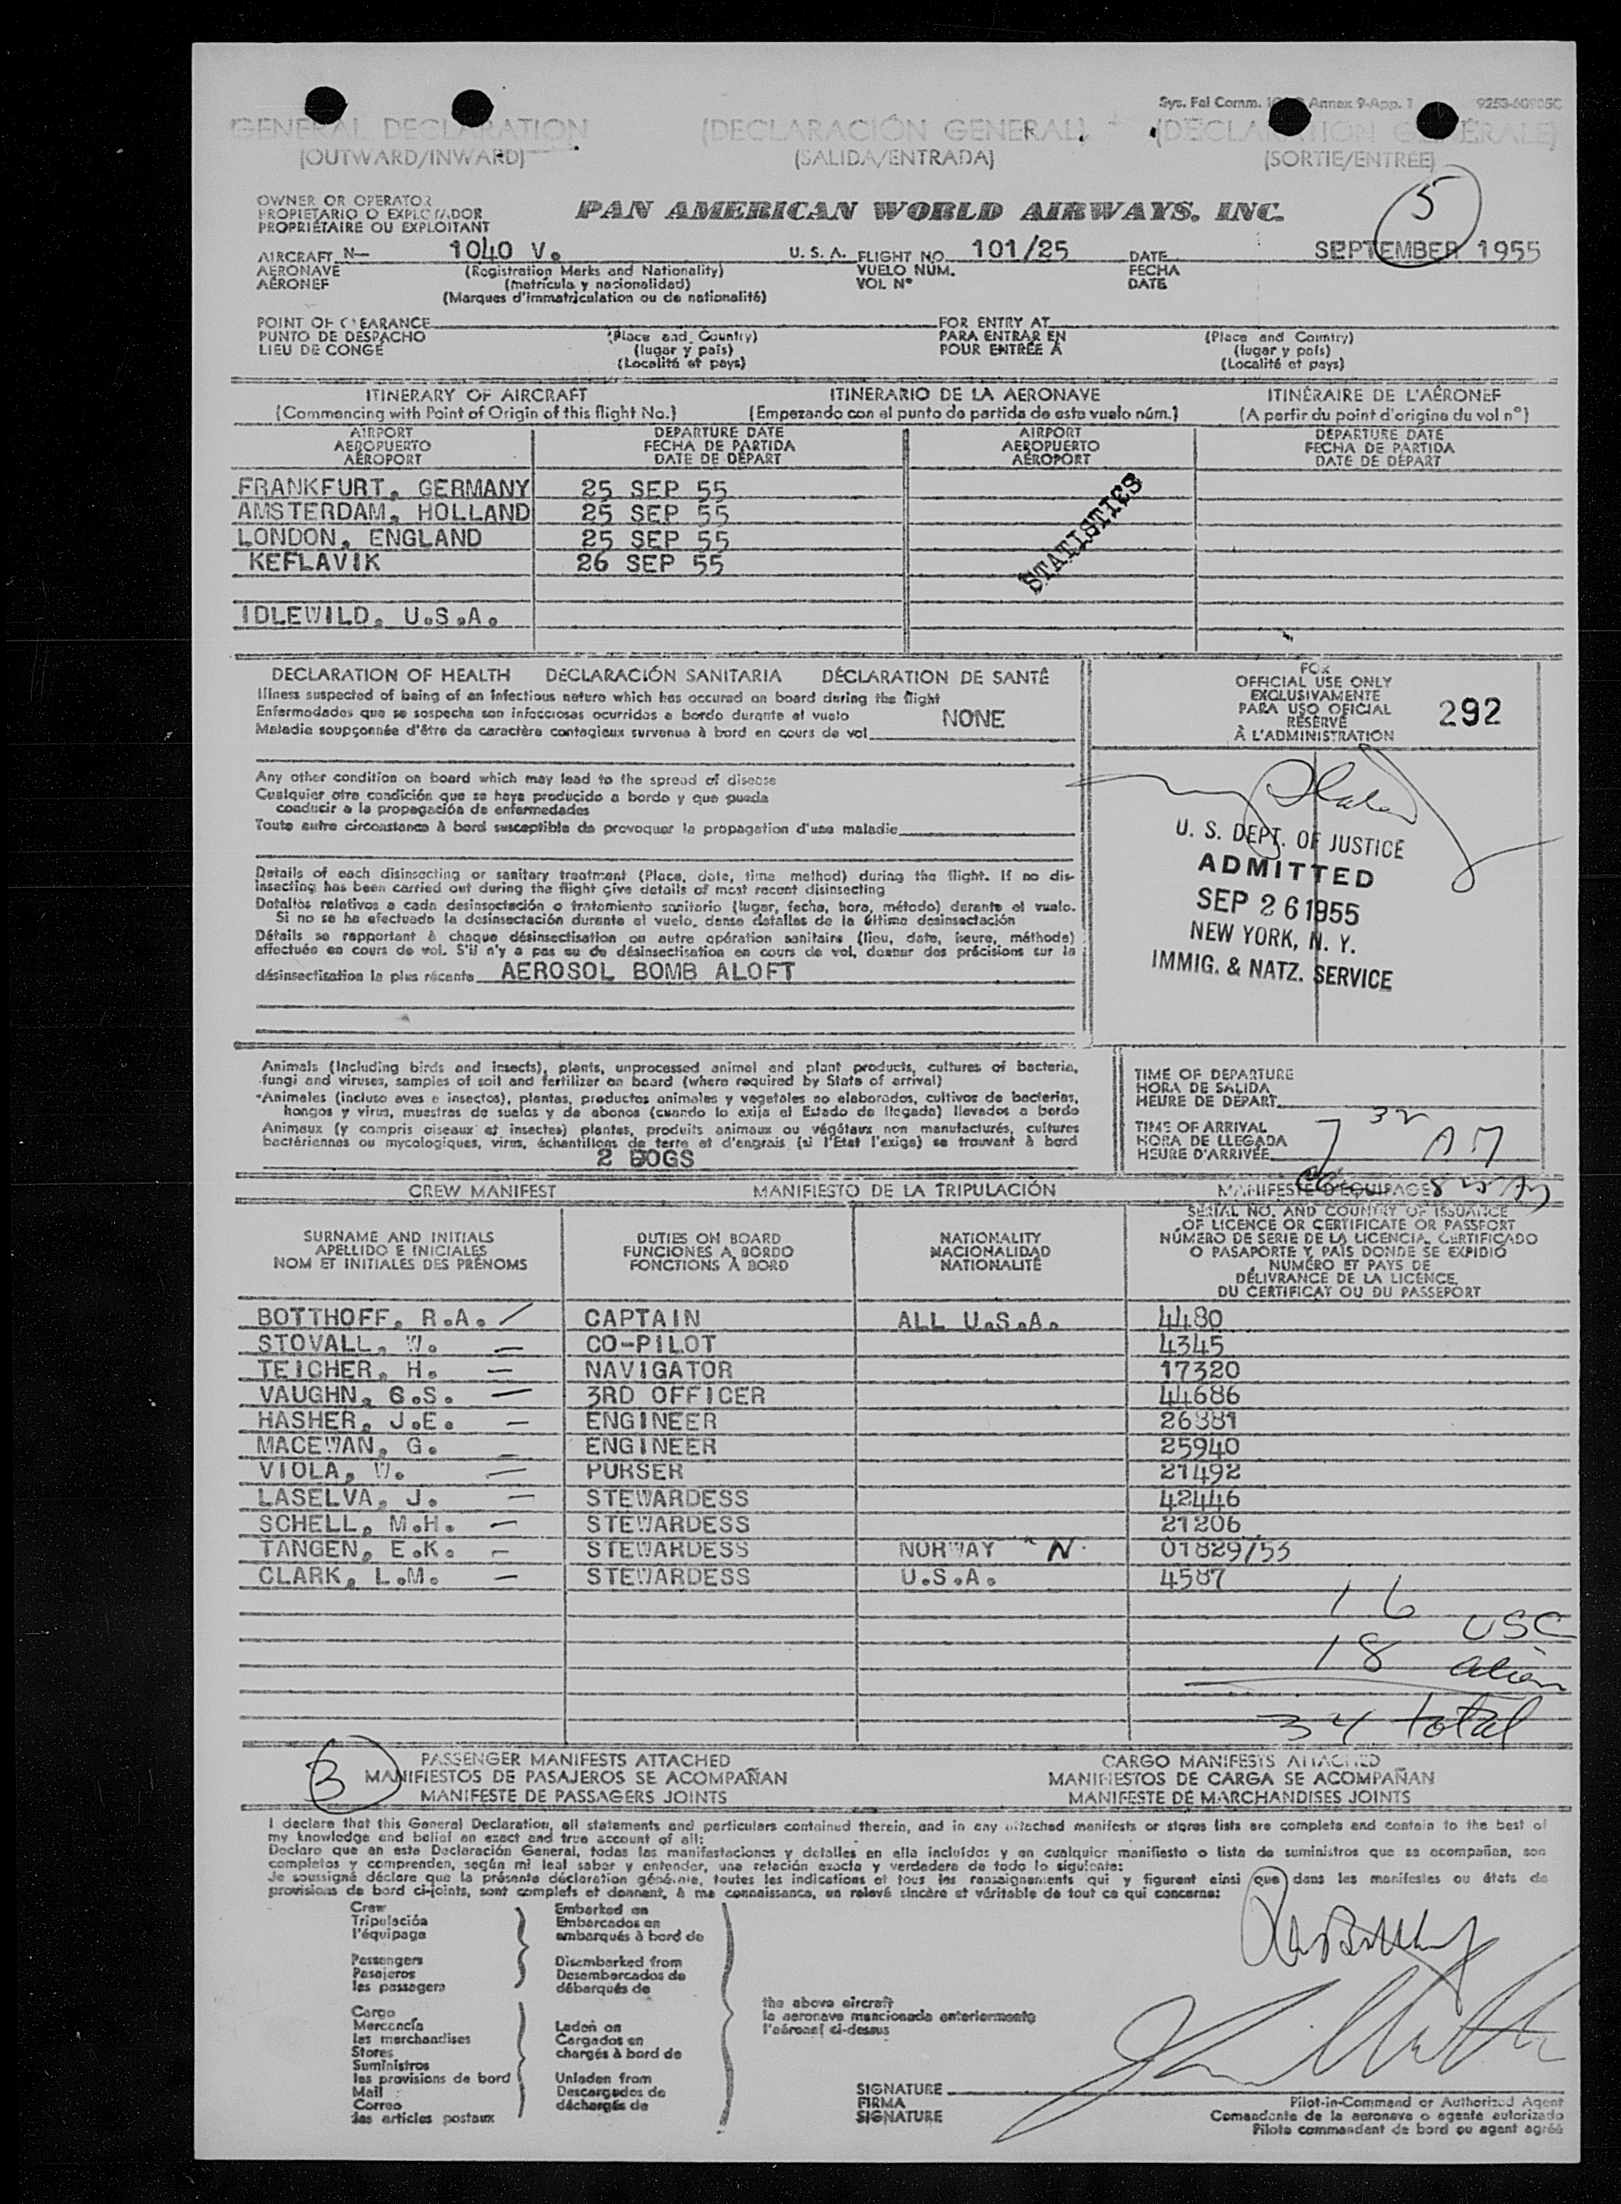 Sys. Fal Comm. Annex 9-App. 1 9253-60905C
GENERAL DECLARATION (DECLARACIÓN GENERAL) (DECLARATION GÉNÉRALE)
(OUTWARD/INWARD) (SALIDA/ENTRADA) (SORTIE/ENTRÉE)
5
OWNER OR OPERATOR
PROPIETARIO O EXPLOTADOR
PROPRIÉTAIRE OU EXPLOITANT
PAN AMERICAN WORLD AIRWAYS, INC.
AIRCRAFT N— 1040 V. U. S. A. FLIGHT NO. 101/25 DATE SEPTEMBER 1955
AERONAVE (Registration Marks and Nationality) VUELO NÚM. FECHA
AÉRONEF (matrícula y nacionalidad) VOL N° DATE
(Marques d'immatriculation ou de nationalité)
POINT OF CLEARANCE FOR ENTRY AT
PUNTO DE DESPACHO (Place and Country) PARA ENTRAR EN (Place and Country)
LIEU DE CONGÉ (lugar y país) POUR ENTRÉE À (lugar y país)
(Localité et pays) (Localité et pays)
ITINERARY OF AIRCRAFT ITINERARIO DE LA AERONAVE ITINÉRAIRE DE L'AÉRONEF
(Commencing with Point of Origin of this flight No.) (Empezando con el punto de partida de este vuelo núm.) (A partir du point d'origine du vol n°)
AIRPORT DEPARTURE DATE AIRPORT DEPARTURE DATE
AEROPUERTO FECHA DE PARTIDA AEROPUERTO FECHA DE PARTIDA
AÉROPORT DATE DE DÉPART AÉROPORT DATE DE DÉPART
FRANKFURT, GERMANY 25 SEP 55
AMSTERDAM, HOLLAND 25 SEP 55
LONDON, ENGLAND 25 SEP 55
KEFLAVIK 26 SEP 55
STATISTICS
IDLEWILD, U.S.A.
DECLARATION OF HEALTH DECLARACIÓN SANITARIA DÉCLARATION DE SANTÉ
Illness suspected of being of an infectious nature which has occured on board during the flight
Enfermedades que se sospecha son infecciosas ocurridas a bordo durante el vuelo
Maladie soupçonnée d'être de caractère contagieux survenue à bord en cours de vol NONE
Any other condition on board which may lead to the spread of disease
Cualquier otra condición que se haya producido a bordo y que pueda
conducir a la propagación de enfermedades
Toute autre circonstance à bord susceptible de provoquer la propagation d'une maladie
Details of each disinsecting or sanitary treatment (Place, date, time method) during the flight. If no dis-
insecting has been carried out during the flight give details of most recent disinsecting
Detalles relativos a cada desinsectación o tratamiento sanitario (lugar, fecha, hora, método) durante el vuelo.
Si no se ha efectuado la desinsectación durante el vuelo, dense detalles de la última desinsectación
Détails se rapportant à chaque désinsectisation ou autre opération sanitaire (lieu, date, heure, méthode)
effectuée en cours de vol. S'il n'y a pas eu de désinsectisation en cours de vol, donner des précisions sur la
désinsectisation la plus récente AEROSOL BOMB ALOFT
FOR
OFFICIAL USE ONLY
EXCLUSIVAMENTE
PARA USO OFICIAL
RÉSERVÉ
À L'ADMINISTRATION
292
U. S. DEPT. OF JUSTICE
ADMITTED
SEP 26 1955
NEW YORK, N. Y.
IMMIG. & NATZ. SERVICE
Animals (Including birds and insects), plants, unprocessed animal and plant products, cultures of bacteria,
fungi and viruses, samples of soil and fertilizer on board (where required by State of arrival)
Animales (incluso aves e insectos), plantas, productos animales y vegetales no elaborados, cultivos de bacterias,
hongos y virus, muestras de suelos y de abonos (cuando lo exija el Estado de llegada) llevados a bordo
Animaux (y compris oiseaux et insectes) plantes, produits animaux ou végétaux non manufacturés, cultures
bactériennes ou mycologiques, virus, échantillons de terre et d'engrais (si l'Etat l'exige) se trouvant à bord
2 DOGS
TIME OF DEPARTURE
HORA DE SALIDA
HEURE DE DÉPART
TIME OF ARRIVAL
HORA DE LLEGADA
HEURE D'ARRIVÉE 7 32 AM
CREW MANIFEST MANIFIESTO DE LA TRIPULACIÓN MANIFESTE D'EQUIPAGE
SURNAME AND INITIALS
APELLIDO E INICIALES
NOM ET INITIALES DES PRÉNOMS
DUTIES ON BOARD
FUNCIONES A BORDO
FONCTIONS À BORD
NATIONALITY
NACIONALIDAD
NATIONALITÉ
SERIAL NO. AND COUNTRY OF ISSUANCE
OF LICENCE OR CERTIFICATE OR PASSPORT
NÚMERO DE SERIE DE LA LICENCIA, CERTIFICADO
O PASAPORTE Y PAÍS DONDE SE EXPIDIÓ
NUMÉRO ET PAYS DE
DÉLIVRANCE DE LA LICENCE,
DU CERTIFICAT OU DU PASSEPORT
BOTTHOFF, R.A. CAPTAIN ALL U.S.A. 4480
STOVALL, W. CO-PILOT 4345
TEICHER, H. NAVIGATOR 17320
VAUGHN, G.S. 3RD OFFICER 44686
HASHER, J.E. ENGINEER 26381
MACEWAN, G. ENGINEER 25940
VIOLA, W. PURSER 21492
LASELVA, J. STEWARDESS 42446
SCHELL, M.H. STEWARDESS 21206
TANGEN, E.K. STEWARDESS NORWAY N 01829/53
CLARK, L.M. STEWARDESS U.S.A. 4587
16 USC
18 alien
34 total
3
PASSENGER MANIFESTS ATTACHED CARGO MANIFESTS ATTACHED
MANIFIESTOS DE PASAJEROS SE ACOMPAÑAN MANIFIESTOS DE CARGA SE ACOMPAÑAN
MANIFESTE DE PASSAGERS JOINTS MANIFESTE DE MARCHANDISES JOINTS
I declare that this General Declaration, all statements and particulars contained therein, and in any attached manifests or stores lists are complete and contain to the best of
my knowledge and belief an exact and true account of all:
Declaro que en esta Declaración General, todas las manifestaciones y detalles en ella incluídos y en cualquier manifiesto o lista de suministros que se acompañan, son
completos y comprenden, según mi leal saber y entender, una relación exacta y verdadera de todo lo siguiente:
Je soussigné déclare que la présente déclaration générale, toutes les indications et tous les renseignements qui y figurent ainsi que dans les manifestes ou états de
provisions de bord ci-joints, sont complets et donnent, à ma connaissance, un relevé sincère et véritable de tout ce qui concerne:
Crew
Tripulación
l'équipage
Passengers
Pasajeros
les passagers
Embarked on
Embarcados en
embarqués à bord de
Disembarked from
Desembarcados de
débarqués de
Cargo
Mercancía
les marchandises
Stores
Suministros
les provisions de bord
Mail
Correo
les articles postaux
Laden on
Cargados en
chargés à bord de
Unladen from
Descargados de
déchargés de
the above aircraft
la aeronave mencionada anteriormente
l'aéronef ci-dessus
SIGNATURE
FIRMA
SIGNATURE
Pilot-in-Command or Authorized Agent
Comandante de la aeronave o agente autorizado
Pilote commandant de bord ou agent agréé